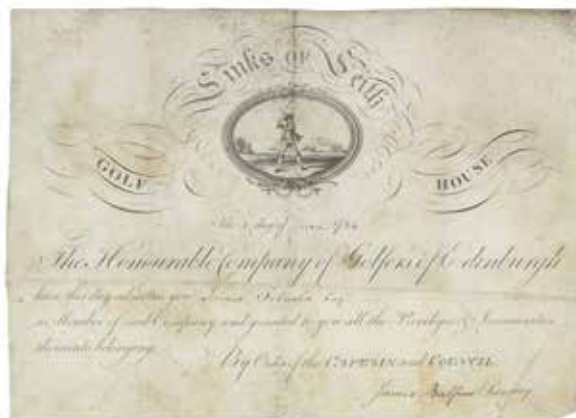 Links OF Leith
GOLF HOUSE
The day of
The Honourable Company of Golfers of Edinburgh
have this day admitted you Esq
a Member of said Company and granted to you all the Priviledges & Immunities
thereunto belonging
By Order of the CAPTAIN and COUNCIL
James Balfour Secretary